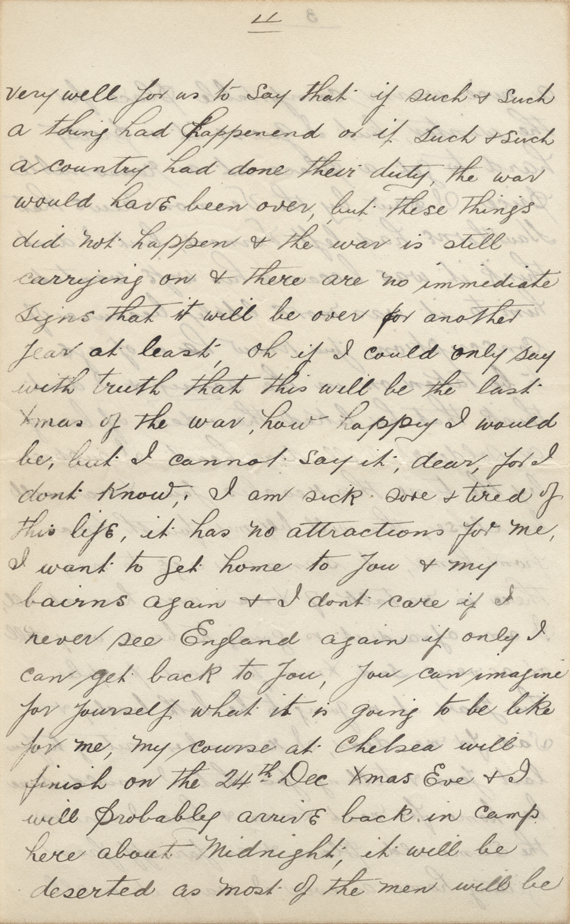 4
very well for us to say that if such & such
a thing had happenend or if such & such
a country had done their duty, the war
would have been over, but these things
did not happen & the war is still
carrying on & there are no immediate
signs that it will be over for another
year at least, Oh if I could only say
with truth that this will be the last
Xmas of the war, how happy I would
be, but I cannot say it, dear, for I
dont know, I am sick sore & tired of
this life, it has no attractions for me,
I want to get home to you & my
bairns again & I dont care if I
never see England again if only I
can get back to you, You can imagine
for yourself what it is going to be like
for me, my course at Chelsea will
finish on the 24th Dec Xmas Eve & I
will probably arrive back in camp
here about Midnight, it will be
deserted as most of the men will be